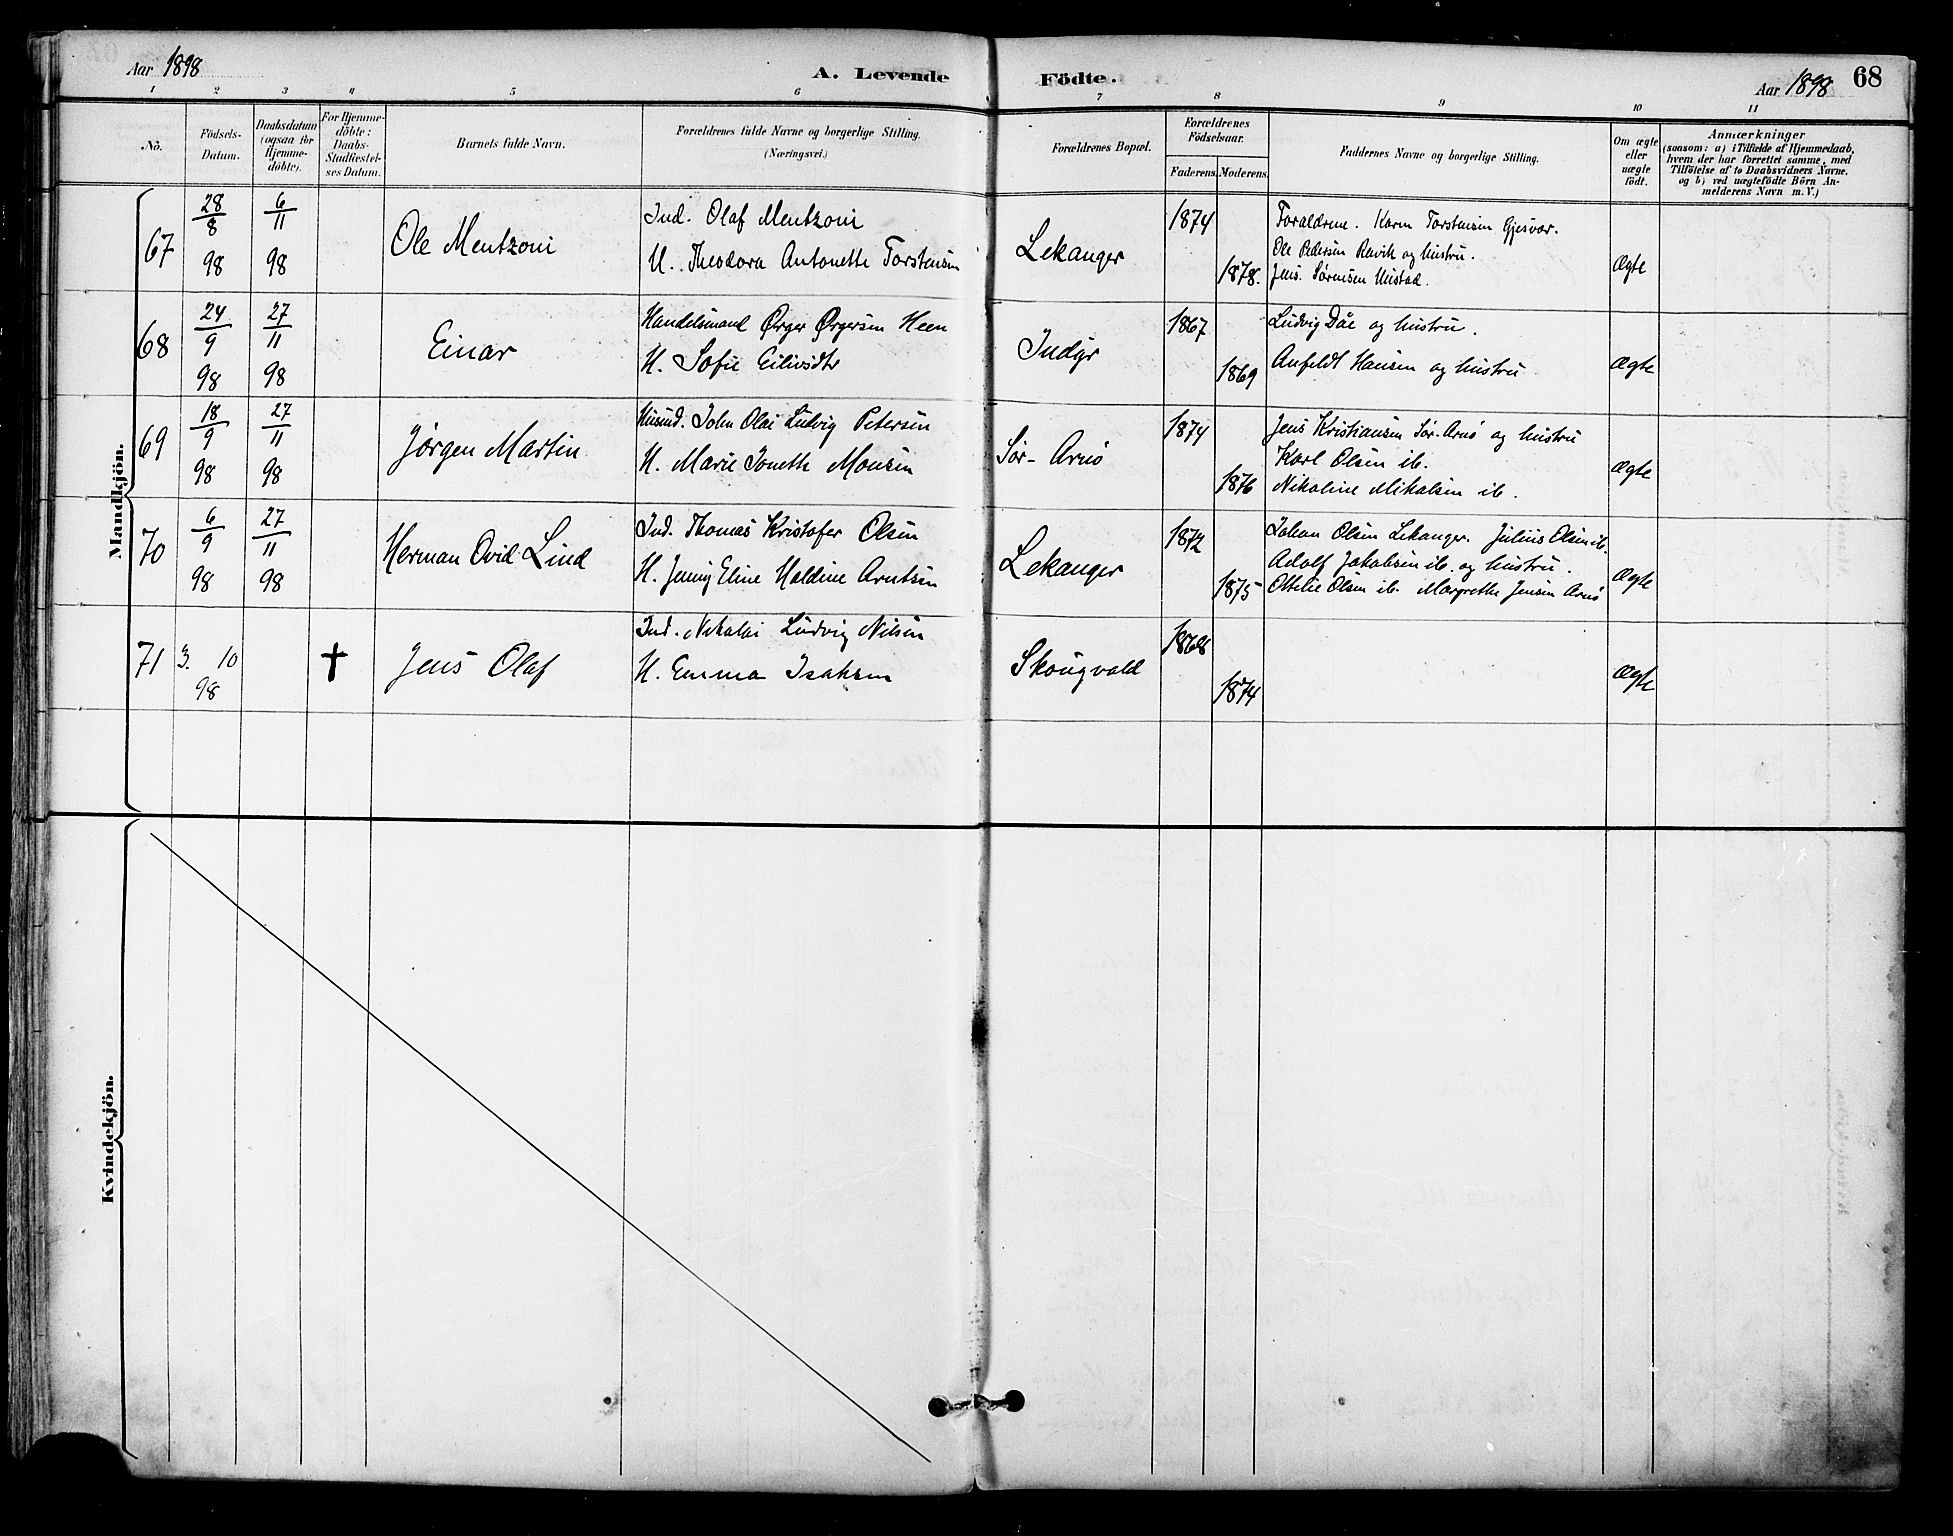 Aar 1898
A. Levende
Födte.
Aar 1898
68
1 2 3 4 5 6 7 8 9 10 11
No.
Födsels-
Datum.
Daabsdatum
(ogsaa for
Hjemme-
döbte).
For Hjemme-
döbte:
Daabs-
Stadfæstel-
ses Datum.
Barnets fulde Navn.
Forældrenes fulde Navne og borgerlige Stilling.
(Næringsvei.)
Forældrenes Bopæl.
Forældrenes
Födselsaar.
Faderens. Moderens.
Faddernes Navne og borgerlige Stilling.
Om ægte
eller
uægte
födt.
Anmærkninger
(saasom: a) i Tilfælde af Hjemmedaab,
hvem der har forrettet samme, med
Tilföielse af to Daabsvidners Navne.
og b) ved uægtefödte Börn An-
melderens Navn m. V.)
Mandkjön.
67
28/8 98
6/11 98
Ole Mentzoni
Ind. Olaf Mentzoni
H. Theodora Antonette Torstensen
Lekanger
1874
1878.
Forældrene. Karen Torstensen Gjesvær.
Ole Pedersen Ravik og hustru.
Jens Sørensen Unstad.
Ægte
68
24/9 98
27/11 98
Einar
Handelsmand Ørger Ørgersen Heen
H. Sofie Eilivsdtr
Indyr
1867
1869
Ludvig Dåe og hustru.
Anfeldt Hansen og hustru
Ægte
69
18/9 98
27/11 98
Jørgen Martin
Husmd. John Olai Ludvig Petersen
H. Marie Jonette Monsen
Sør-Arnø
1874
1876
Jens Kristiansen Sør-Arnø og hustru
Karl Olsen ib.
Nikoline Mikalsen ib.
Ægte
70
6/9 98
27/11 98
Herman Ovid Lind
Ind. Thomas Kristofer Olsen
H. Jenny Eline Haldine Arntsen
Lekanger
1872
1875
Johan Olsen Lekanger. Julius Olsen ib.
Adolf Jakobsen ib. og hustru.
Ottelie Olsen ib. Margrethe Jensen Arnø
Ægte
71
3. 10
98
†
Jens Olaf
Ind. Nikolai Ludvig Nilsen
H. Emma Isaksen
Skougvold
1868
1874
Ægte
Kvindekjön.